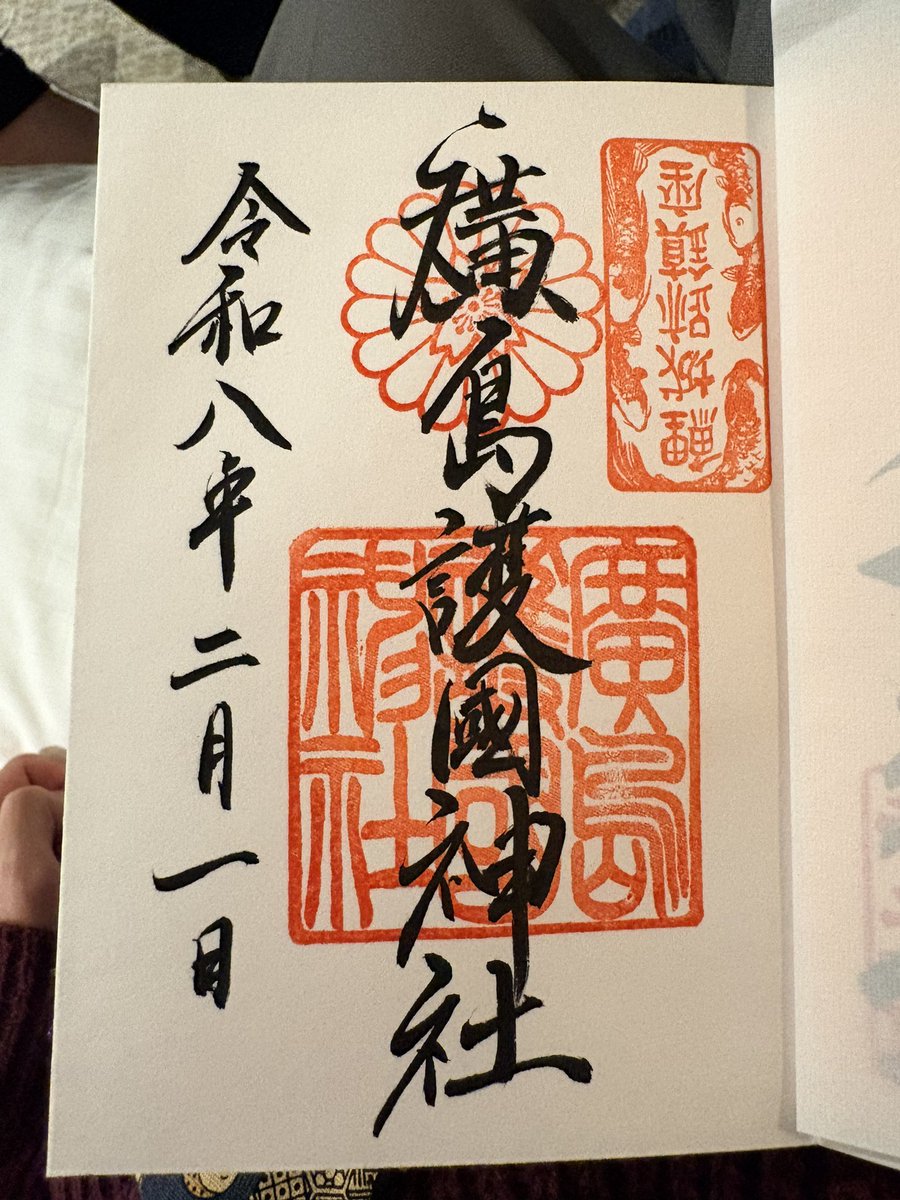 鯉城跡鎮座
廣島護國神社
廣島護國神社
令和八年二月一日